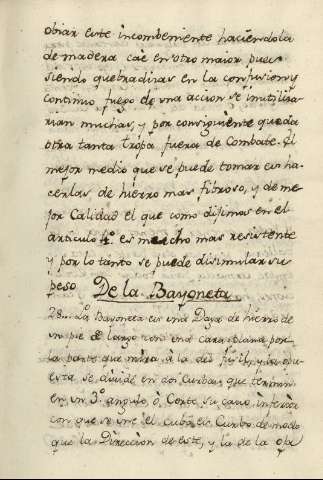 obiar este incombeniente haciendola
de madera cae en otro maior pues
siendo quebradizas en la confusion y
continuo fuego de una accion se inutiliza-
rian muchas, y por consiguiente queda
otra tanta tropa fuera de Combate. El
mejor medio que se puede tomar es ha-
cerlas de hierro mas fibroso, y de me-
jor Calidad el que como dijimos en el
articulo 4º es mucho mas resistente
y por lo tanto se puede disimular su
peso De la Bayoneta
28... La Bayoneta es una Daga de hierro de
un pie de largo con una cara plana por
la parte que mira à la del fusil, y la opu-
esta se divide en dos Curbas, que forman
en un 3º angulo, ò Corte su cavo inferior
con que se une el Cubo, es Curbo de modo
que la Direccion de este, y la de la oja